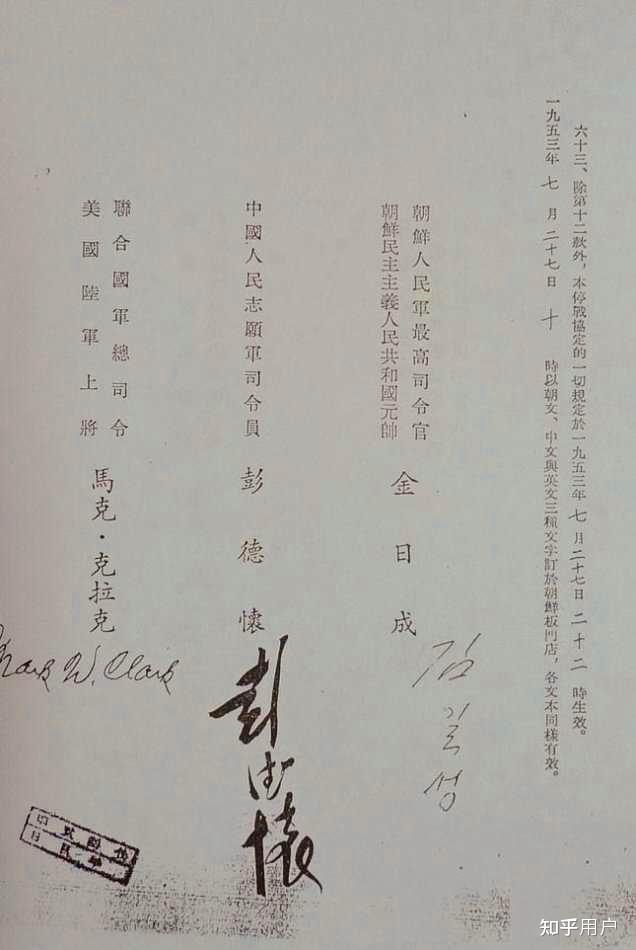 六十三、除第十二款外，本停戰協定的一切規定於一九五三年 七 月 二十七日 二十二 時生效。
一九五三年 七 月 二十七日 十 時以朝文、中文與英文三種文字訂於朝鮮板門店，各文本同樣有效。
朝鮮人民軍最高司令官
朝鮮民主主義人民共和國元帥
金日成
김일성
中國人民志願軍司令員
彭德懷
彭德懷
聯合國軍總司令
美國陸軍上將
馬克·克拉克
Mark W. Clark
知乎用户